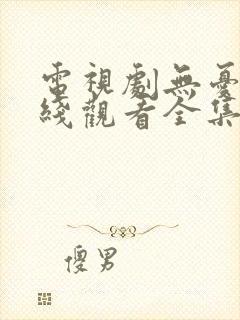 電視劇無憂
綫觀看全集
傻男